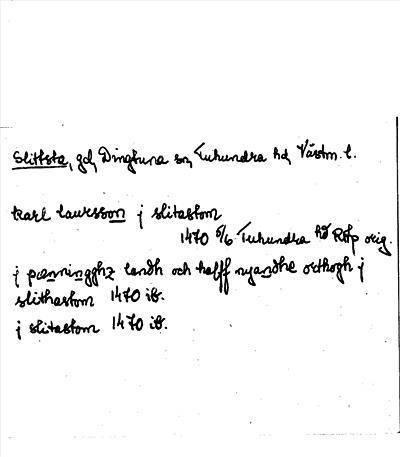 Slittsta, gd, Dingtuna sn, Tuhundra hd, Västm. l.
karl laursson j slitastom
1470 5/6 Tuhundra hd RAp orig.
j pænningghz landh och halff nyandhe örthogh j
slithastom 1470 ib.
j slitastom 1470 ib.